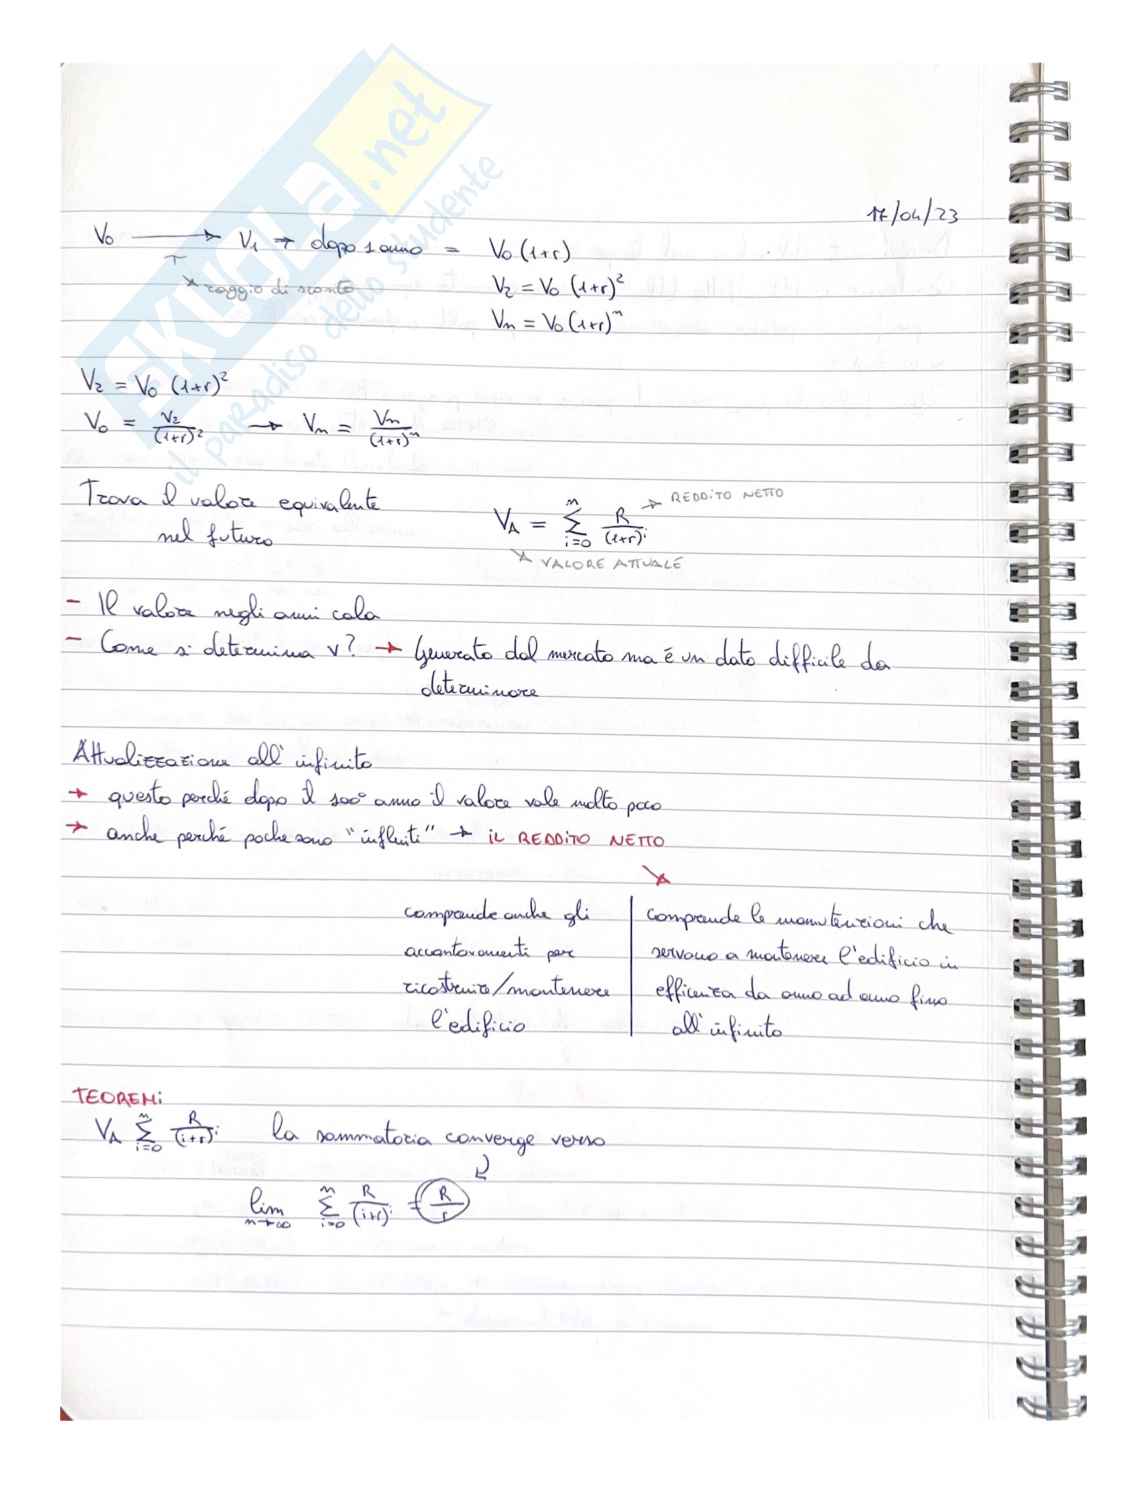 SKUOLA.net
il paradiso dello studente
17/04/23
V₀ → V₁ → dopo 1 anno = V₀ (1+r)
r
↘ saggio di sconto
V₂ = V₀ (1+r)²
Vₙ = V₀ (1+r)ⁿ
V₂ = V₀ (1+r)²
V₀ = V₂/(1+r)² → Vₙ = Vₙ/(1+r)ⁿ
Trova il valore equivalente
nel futuro
V_A = Σ_{i=0}^{n} R/(1+r)ⁱ → REDDITO NETTO
↘ VALORE ATTUALE
- Il valore negli anni cala
- Come si determina r? → Generato dal mercato ma è un dato difficile da
determinare
Attualizzazione all'infinito
→ questo perché dopo il 100° anno il valore vale molto poco
→ anche perché poche sono "influenti" → IL REDDITO NETTO
comprende anche gli
accantonamenti per
ricostruire/mantenere
l'edificio
comprende le manutenzioni che
servono a mantenere l'edificio in
efficienza da anno ad anno fino
all'infinito
TEOREMi
V_A Σ_{i=0}^{n} R/(1+r)ⁱ la sommatoria converge verso
lim_{n→∞} Σ_{i=0}^{n} R/(1+r)ⁱ = R/r